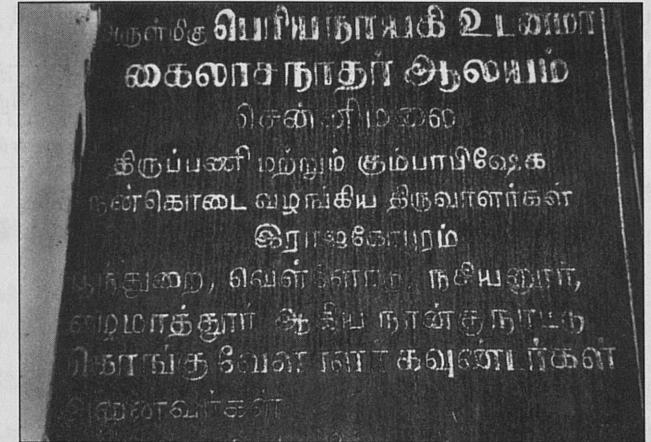 அருள்மிகு பெரியநாயகி உடனமர்
கைலாசநாதர் ஆலயம்
சென்னிமலை
திருப்பணி மற்றும் கும்பாபிஷேக
நன்கொடை வழங்கிய திருவாளர்கள்
இராஜகோபுரம்
பூந்துறை, வெள்ளோடு, நசியனூர்,
எழுமாத்தூர் ஆகிய நான்கு நாட்டு
கொங்கு வேளாளர் கவுண்டர்கள்